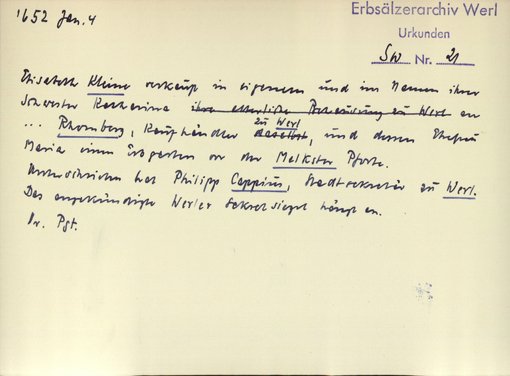 1652 Jan. 4
Erbsälzerarchiv Werl
Urkunden
SW Nr. 21
Elisabeth Kleine verkauft in eigenem und im Namen ihrer
Schwester Katharina ihre elterliche Behausung zu Werl an
... Rhomberg, Kaufhändler daselbst, zu Werl und dessen Ehefrau
Maria einen Garten vor der Melkster Pforte.
Unterschrieben hat Philipp Cappius, Stadtsekretär zu Werl.
Das angekündigte Werler Sekretsiegel hängt an.
Or. Pgt.